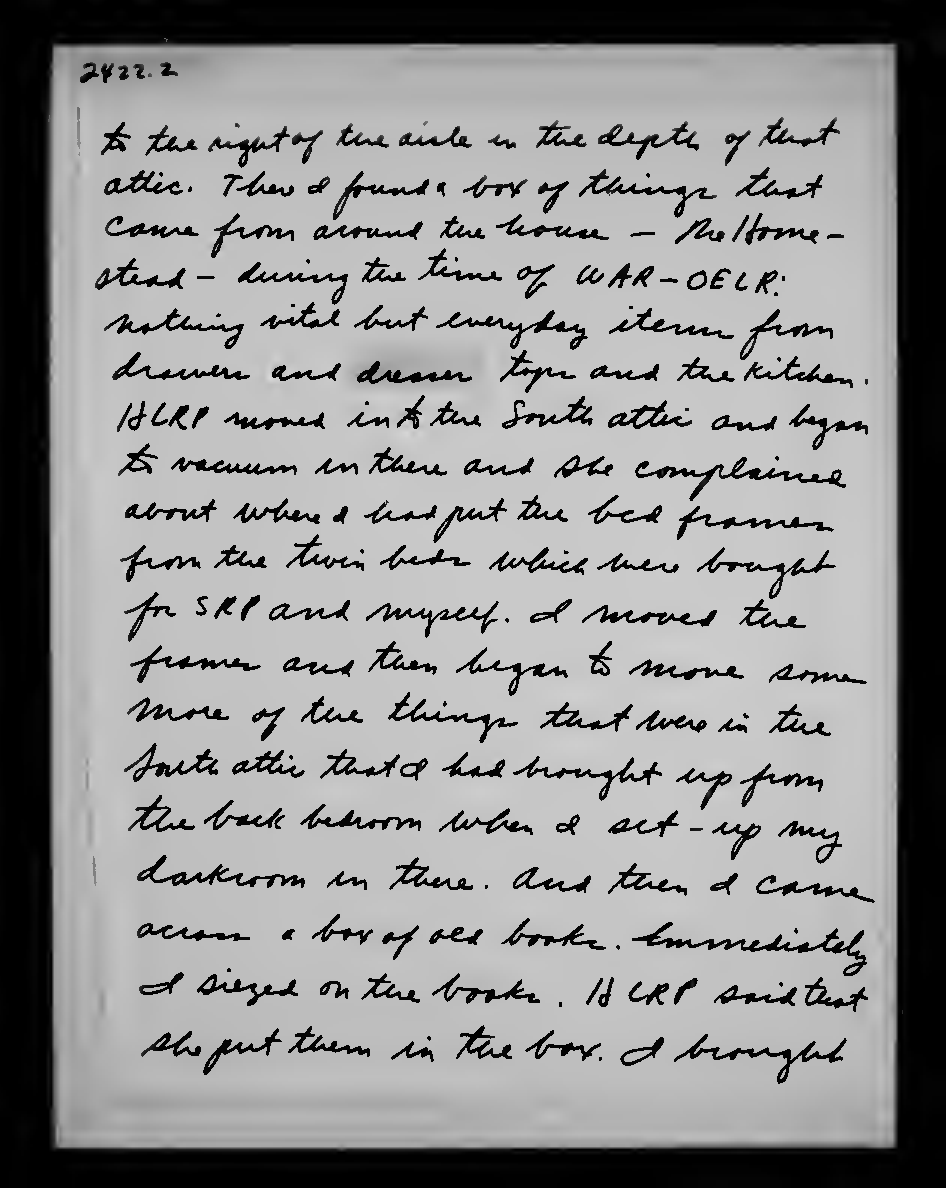 2422.2
to the right of the aisle in the depth of that
attic. There I found a box of things that
came from around the house — the Home-
stead — during the time of WAR-OELR:
nothing vital but everyday items from
drawers and dresser tops and the kitchen.
HLRP moved into the South attic and began
to vacuum in there and she complained
about where I had put the bed frames
from the twin beds which were bought
for SRP and myself. I moved the
frames and then began to move some
more of the things that were in the
South attic that I had brought up from
the back bedroom when I set-up my
darkroom in there. And then I came
across a box of old books. Immediately
I siezed on the books. HLRP said that
she put them in the box. I brought